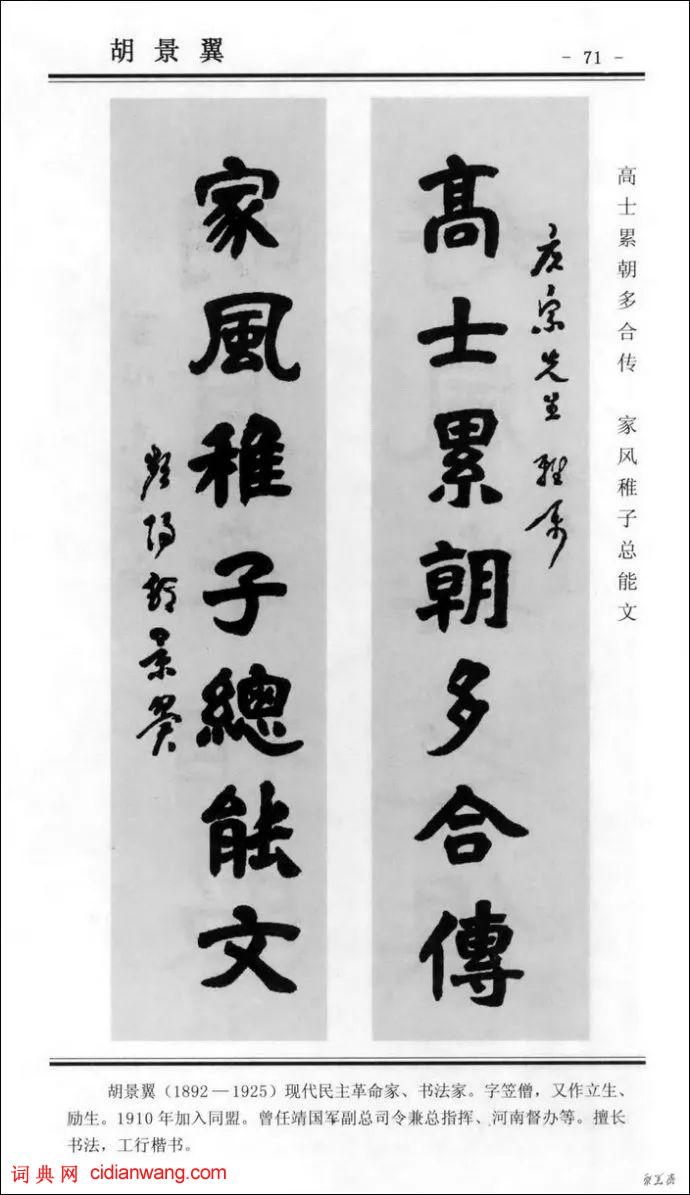 胡景翼
- 71 -
高士累朝多合传 家风稚子总能文
宗先生 雅属
高士累朝多合傳
家風稚子總能文
頻陽胡景翼
胡景翼（1892—1925）现代民主革命家、书法家。字笠僧，又作立生、
励生。1910 年加入同盟。曾任靖国军副总司令兼总指挥、河南督办等。擅长
书法，工行楷书。
词典网 cidianwang.com